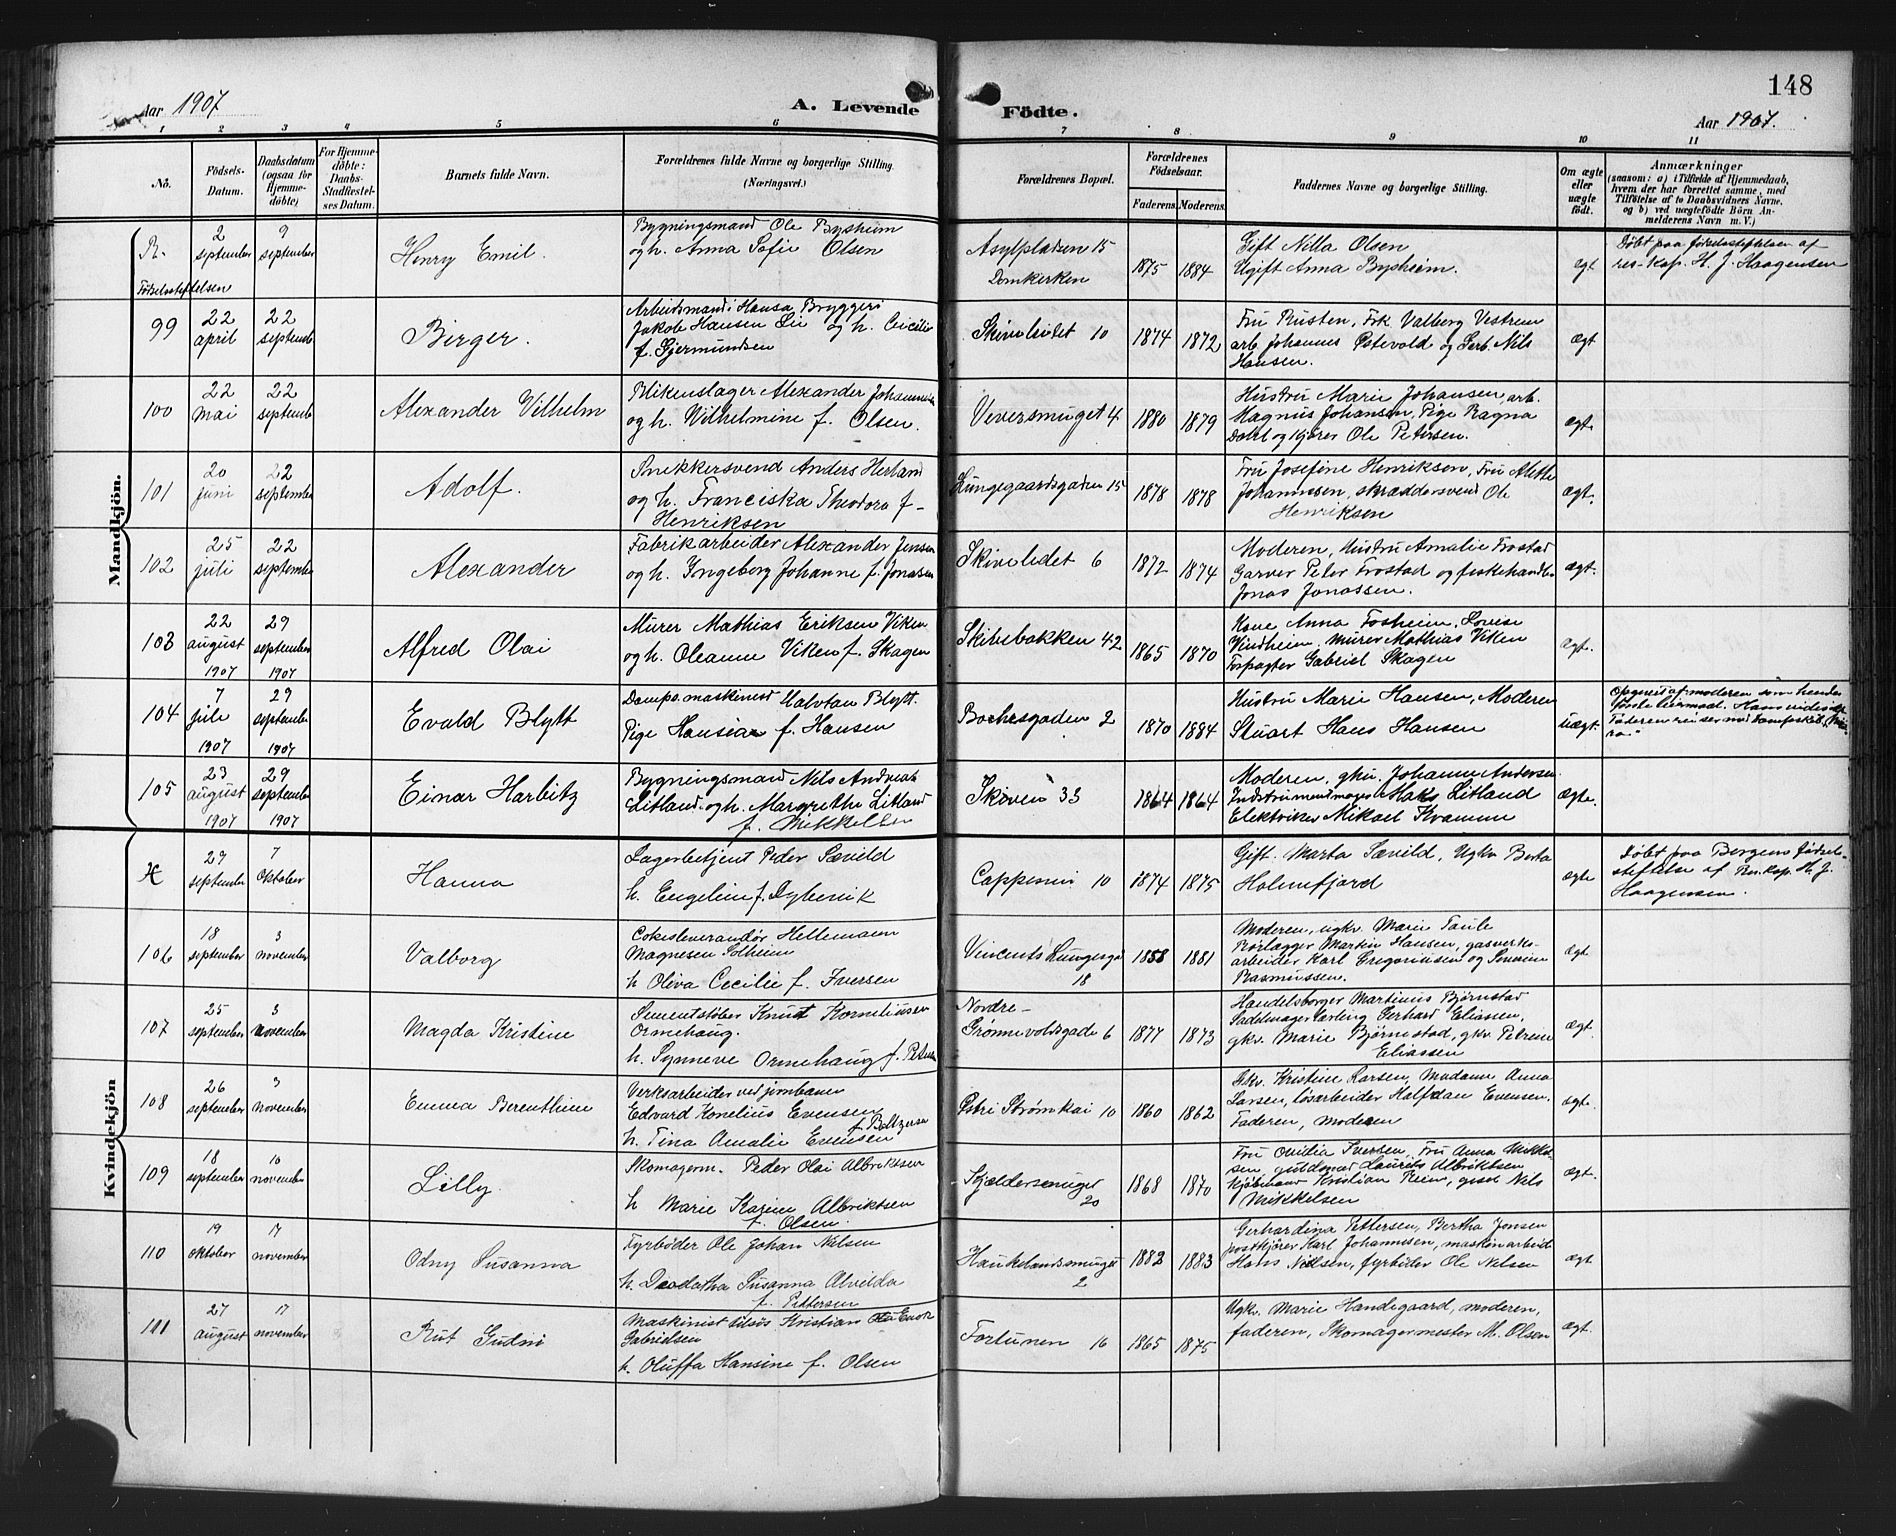 148
Aar 1907
A. Levende Födte.
Aar 1907.
1 2 3 4 5 6 7 8 9 10 11
No.
Födsels-
Datum.
Daabsdatum
(ogsaa för
Hjemme-
döbte)
For Hjemme-
döbte:
Daabs-
Stadfæstel-
ses Datum.
Barnets fulde Navn.
Forældrenes fulde Navne og borgerlige Stilling.
(Næringsvei.)
Forældrenes Bopæl.
Forældrenes
Födselsaar.
Faderens Moderens.
Faddernes Navne og borgerlige Stilling.
Om ægte
eller
uægte
födt.
Anmærkninger
(saasom: a) i Tilfælde af Hjemmedaab,
hvem der har forrettet samme, med
Tilföielse af to Daabsvidners Navne,
og b) ved uægtefödte Börn An-
melderens Navn m. V.)
Mandkjön.
R.
Fødselsstiftelsen
2
september
9
september
Henry Emil.
Bygningsmand Ole Bysheim
og h. Anna Sofie Olsen
Asylpladsen 15
Domkirken
1875
1884
Gift Nilla Olsen
Ugift Anna Bysheim.
ægt
Døbt paa fødselsstiftelsen af
res. kap. H. J. Haagensen
99
22
april
22
septemb
Birger.
Arbeidsmand i Hansa Bryggeri
Jakob Hansen Lie og h. Cecilie
f. Gjermundsen
Skiveledet 10
1874
1872
Fru Rusten, Frk Valborg Vestrem
arb. Johannes Petevold og Serb. Nils
Hansen.
ægt
100
22
mai
22
septemb
Alexander Vilhelm
Blikenslager Alexander Johannesen
og h. Vilhelmine f. Olsen.
Veversmuget 4
1880
1879
Hustru Marie Johansen, arb.
Magnus Johansen, Pige Ragna
Dahl og kjører Ole Petersen.
ægt.
101
20
juni
22
september
Adolf.
Snekkersvend Anders Herland
og h. Franciska Theodora f-
Henriksen
Lungegaardsgaden 15
1878
1878
Fru Josefine Henriksen, Fru Alethe
Johannesen, skræddersvend Ole
Henriksen
ægt.
102
25
juli
22
september
Alexander
Fabrikarbeider Alexander Jensen
og h. Ingeborg Johanne f. Jonasen
Skiveledet 6
1872
1874
Moderen, Hustru Amalie Frostad
Garver Peter Frostad og fiskehandler
Jonas Jonassen.
ægt.
103
22
august
1907
29
september
1907
Alfred Olai
Murer Mathias Eriksen Viken
og h. Oleanne Viken f. Skagen
Skivebakken 42
1865
1870
Kone Anna Fosheim, Lovise
Vindheim, murer Mathias Viken
Forpagter Gabriel Skagen
ægt.
104
7
juli
1907
29
september
1907
Evald Blytt
Dampsmaskinist Halvtan Blytt.
Pige Hansia f. Hansen
Bochesgaden 2
1870
1884
Hustru Marie Hansen, Moderen
Stuart Hans Hansen
uægt.
Opgived af moderen som hendes
første leiermaal.
105
23
august
1907
29
september
1907
Einar Harbitz
Bygningsmand Nils Andreas
Litland og h. Margrethe Litland
f. Mikkelsen
Skiven 33
1864
1864
Moderen, gkv. Johanne Andersen
Indstrumentmager Hans Litland
Elektriker Mikael Kvamme
ægte.
Kvindekjön
H
29
september
7
Oktober
Hanna
Lagerbetjent Peder Sævild
h. Engeline f. Dybevik
Cappesmi 10
1874
1875
Gift. Marta Sævild, Ugkv Berta
Holmefjord
ægte
Døbt paa Bergens fødsels-
stiftelse af Res. kap. H. J.
Haagensen.
106
18
september
3
november
Valborg
Cokesleverandør Hellemann
Magnesen Solheim
h Oliva Cecilie f. Iversen
Vincents Lungesgd
18
1858
1881
Moderen, ugkv. Marie Taule
Rørlægger Martin Hansen, gasverks-
arbeider Karl Gregoriusen og Severin
Rasmussen.
ægt
107
25
september
3
november
Magda Kristine
Sementstøber Knut Korneliussen
Ormehaug.
h. Synneve Ormehaug f. Peters
Nordre-
Grønnevoldsgade 6
1877
1873
Handelsborger Martinus Bjørnstad
Sadelmagerlærling Gerhard Eliassen,
gkv. Marie Bjørnestad, gkv. Petrine
Eliassen
ægt
108
26
september
3
november
Emma Berenthine
Verksarbeider ved jernbanen
Edvard Kornelius Evensen
h. Tina Amalie Evensen f. Boltzersen
Østri Strømkai 10
1860
1862
Gkv. Kristine Larsen, Madame Anna
Larsen, løsarbeider Halfdan Evensen.
Faderen, moderen
ægte.
109
18
september
10
november
Lilly
Skomagerm. Peder Olai Albrektsen
h Marie Karine Albriktsen
f. Olsen.
Kjeldersmuget
20
1868
1870
Fru Otilia Iversen, Fru Anna Mikkel-
sen, guldsmed Laurits Albriktsen
kjøbmand Kristian Reim, gesel Nils
Mikkelsen
ægt.
110
19
oktober
17
november
Odny Susanna
Fyrbøder Ole Johan Nilsen
h. Deodatha Susanna Alvilda
f. Pettersen
Haukelandsmuget
2
1882
1883
Gerhardina Pettersen, Bertha Jonsen
postkjører Karl Johannesen, maskinarbeid
Hans Nilsen, fyrbøder Ole Nilsen
ægt
111
27
august
17
november
Rut Gudni
Maskinist Kristian Enok
Gabrielsen
h. Oluffa Hansine f. Olsen
Fortunen 16
1865
1875
Ugkv. Marie Handegaard, moderen,
faderen, Skomagermester M. Olsen
ægt.